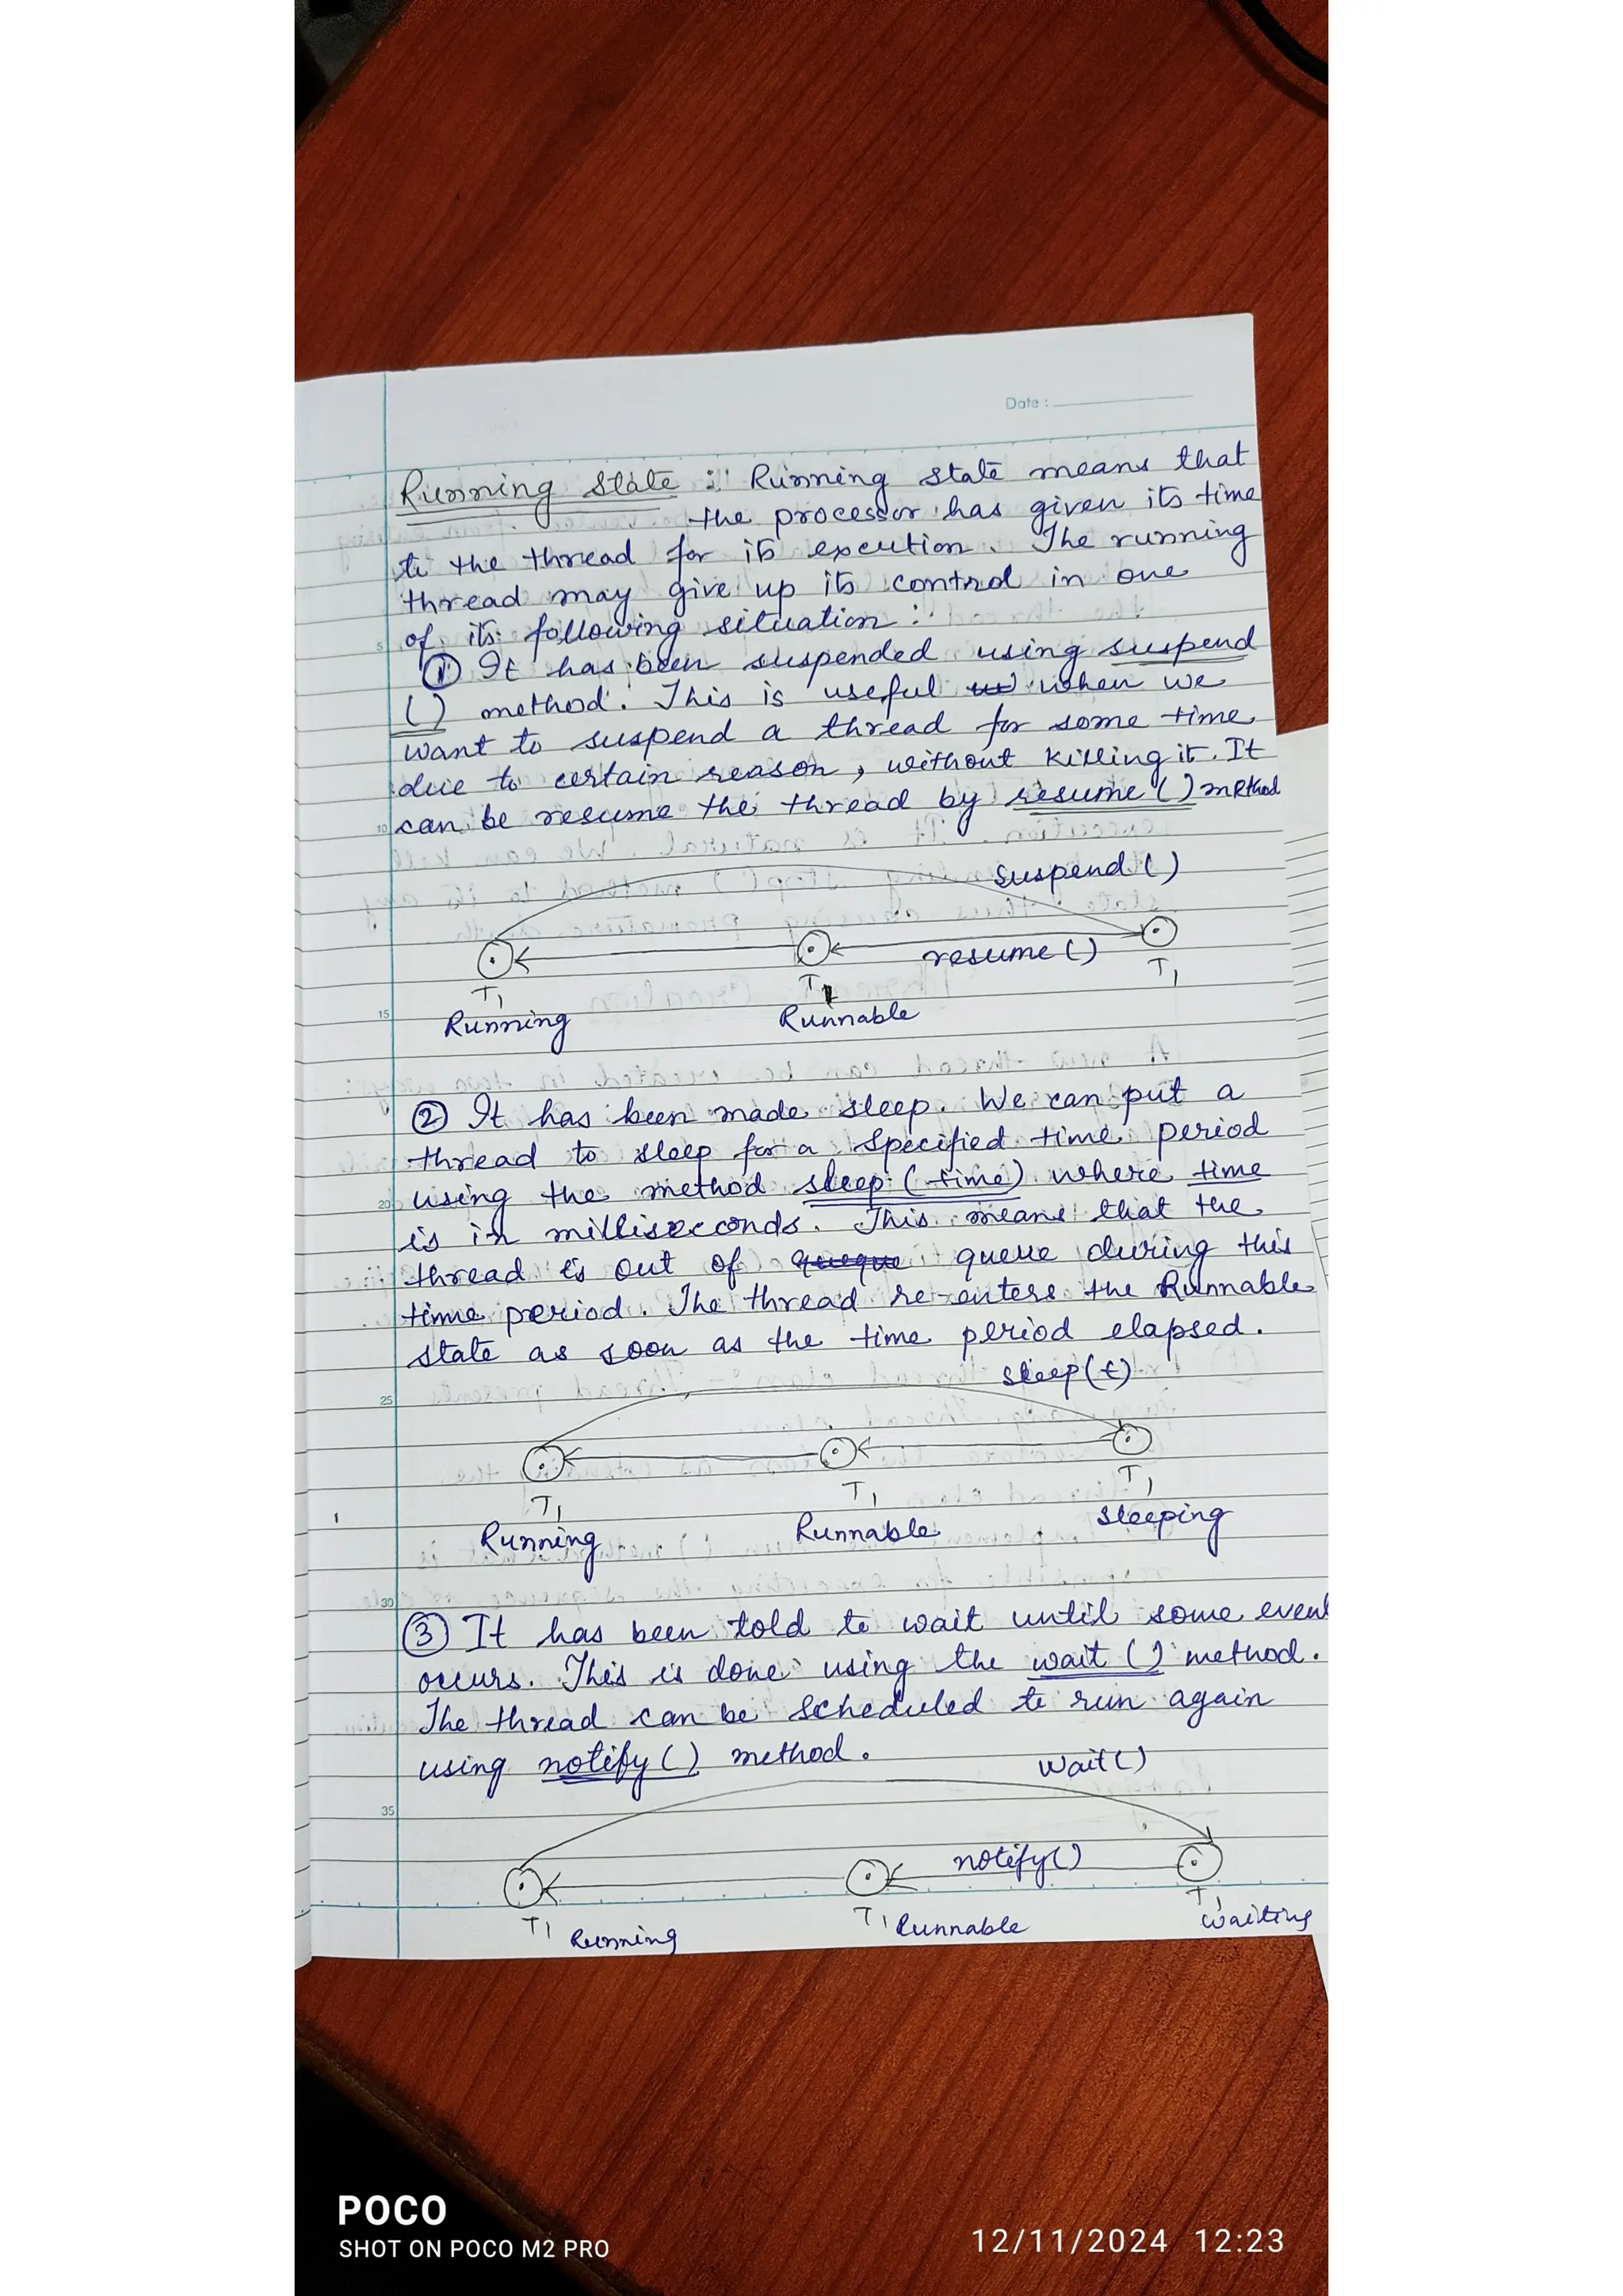 Date :
Running State :- Running state means that
the processor has given its time
to the thread for its excution. The running
thread may give up its control in one
of its following situation :-
① It has been suspended using suspend
( ) method. This is useful when we
want to suspend a thread for some time
due to certain reason, without killing it. It
can be resume the thread by resume ( ) method
suspend ( )
resume ( )
T1 T1 T1
Running Runnable
② It has been made sleep. We can put a
thread to sleep for a specified time period
using the method sleep (time) where time
is in milliseconds. This means that the
thread is out of queue during this
time period. The thread re-enters the Runnable
state as soon as the time period elapsed.
sleep(t)
T1 T1 T1
Running Runnable sleeping
③ It has been told to wait until some event
occurs. This is done using the wait ( ) method.
The thread can be scheduled to run again
using notify ( ) method.
wait ( )
notify( )
T1 Running T1 Runnable T1 waiting
POCO
SHOT ON POCO M2 PRO
12/11/2024 12:23